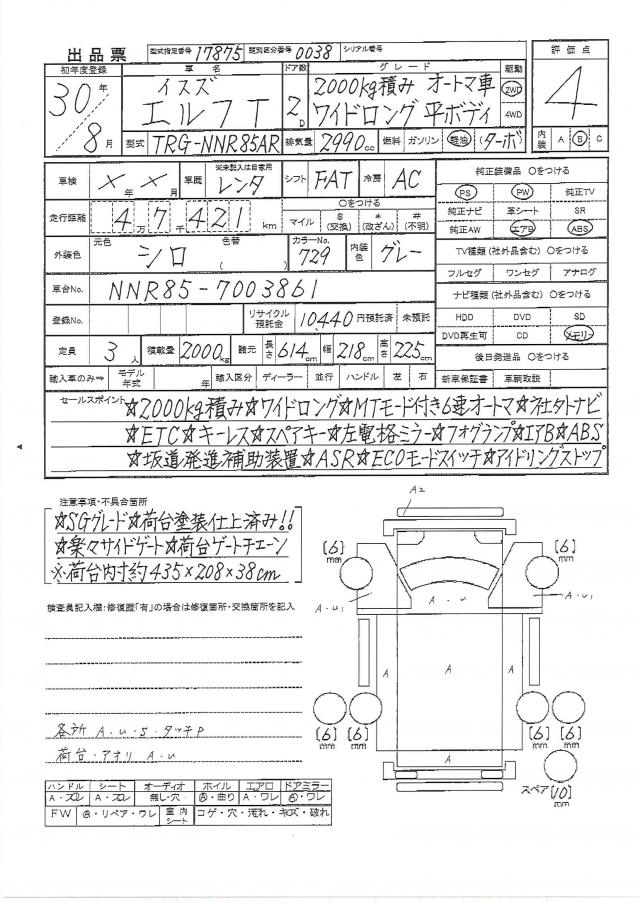 出品票 型式指定番号 17875 類別区分番号 0038 シリアル番号
評価点
4
初年度登録 車名 ドア数 グレード 駆動
30年 イスズ 2000kg積み オートマ車 2WD
8月 エルフT 2D ワイドロング 平ボディ 4WD
型式 TRG-NNR85AR 排気量 2990cc 燃料 ガソリン 軽油 (ターボ) 内装 A B C
車検 ×年×月 車歴 ※未記入は自家用 レンタ シフト FAT 冷房 AC
純正装備品 〇をつける
PS PW 純正TV
走行距離 4万7千421km 〇をつける
マイル $(交換) *(改ざん) #(不明)
純正ナビ 革シート SR
純正AW エアB ABS
外装色 元色 シロ 色替( ) カラーNo. 729 内装色 グレー
TV種類(社外品含む) 〇をつける
フルセグ ワンセグ アナログ
車台No. NNR85-7003861
ナビ種類(社外品含む) 〇をつける
登録No. リサイクル預託金 10,440円預託済 未預託
HDD DVD SD
DVD再生可 CD メモリー
定員 3人 積載量 2000kg 諸元 長さ 614cm 幅 218cm 高さ 225cm
後日発送品 〇をつける
輸入車のみ⇒ モデル年式 年 輸入区分 ディーラー 並行 ハンドル 左 右 新車保証書 車輌取説
セールスポイント ☆2000kg積み☆ワイドロング☆MTモード付き6速オートマ☆社外ナビ
☆ETC☆キーレス☆スペアキー☆左電格ミラー☆フォグランプ☆エアB☆ABS
☆坂道発進補助装置☆ASR☆ECOモードスイッチ☆アイドリングストップ
注意事項・不具合箇所
☆SGグレード☆荷台塗装仕上済み!!
☆楽々サイドゲート☆荷台ゲートチェーン
※荷台内寸約435×208×38cm
検査員記入欄:修復歴「有」の場合は修復箇所・交換箇所を記入
各所 A・U・S・タッチP
荷台・アオリ A・U
A2
[6]mm [6]mm
A・U1 A・U A・U1
A A A
[6]mm [6]mm [6]mm [6]mm
A
スペア [10]mm
ハンドル シート オーディオ ホイル エアロ ドアミラー
A・スレ A・スレ 無し・穴 A・曲り A・ワレ A・ワレ
FW A・リペア・ワレ 室内シート コゲ・穴・汚れ・キズ・破れ